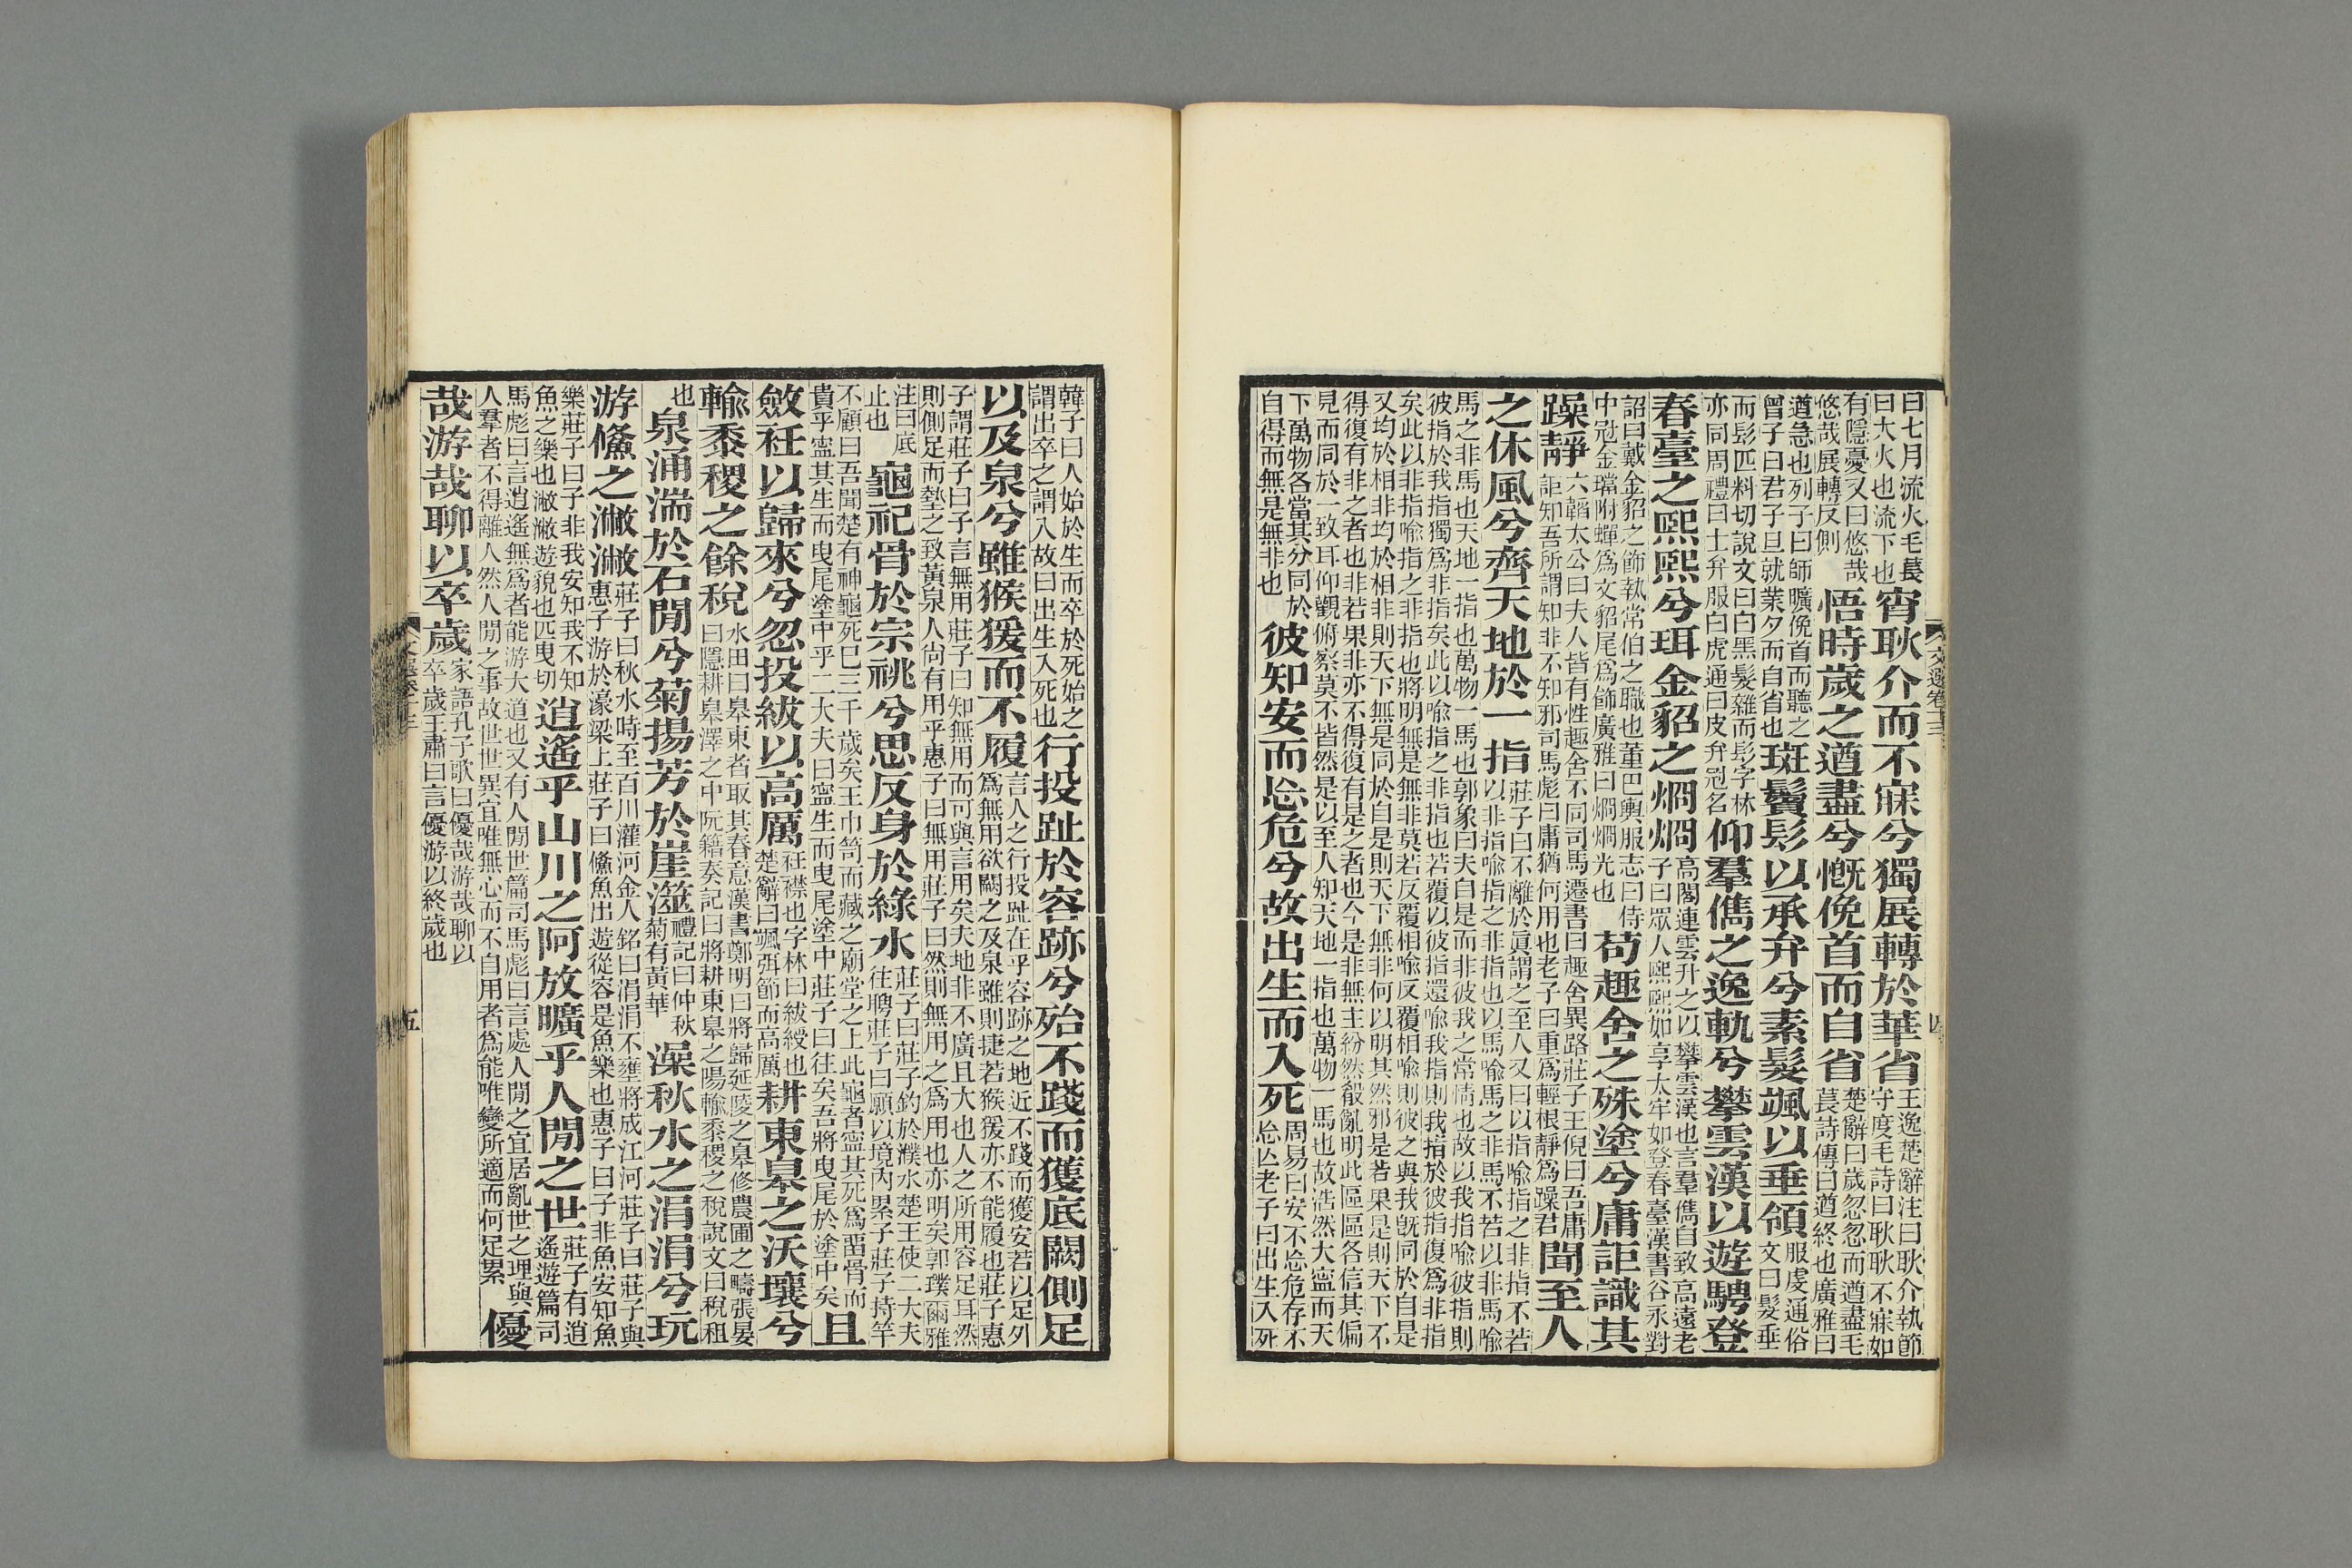 曰七月流火毛萇曰大火也流下也宵耿介而不寐兮獨展轉於華省王逸楚辭注曰耿介執節守度毛詩曰耿耿不寐如
有隱憂又曰悠哉悠哉展轉反側悟時歲之遒盡兮慨俛首而自省楚辭曰歲忽忽而遒盡毛萇詩傳曰遒終也廣雅曰
遒急也列子曰師曠俛首而聽之曾子曰君子旦就業夕而自省也斑鬢髟以承弁兮素髮颯以垂領服虔通俗文曰髮垂
而髟匹料切說文曰白黑髮雜而髟字林亦同周禮曰士弁服白虎通曰皮弁冠名仰羣儁之逸軌兮攀雲漢以遊騁登
春臺之熙熙兮珥金貂之烱烱高閣連雲升之以攀雲漢也言羣儁自致高遠老子曰眾人熙熙如享太牢如登春臺漢書谷永對
詔曰戴金貂之飾執常伯之職也董巴輿服志曰侍中冠金璫附蟬爲文貂尾爲飾廣雅曰烱烱光也苟趣舍之殊塗兮庸詎識其
躁靜六韜太公曰夫人皆有性趣舍不同司馬遷書曰趣舍異路莊子王倪曰吾庸詎知吾所謂知非不知邪司馬彪曰庸猶何用也老子曰重爲輕根靜爲躁君聞至人
之休風兮齊天地於一指莊子曰不離於眞謂之至人又曰以指喻指之非指不若以非指喻指之非指也以馬喻馬之非馬不若以非馬喻
馬之非馬也天地一指也萬物一馬也郭象曰夫自是而非彼我之常情也故以我指喻彼指則彼指於我指獨爲非指矣此以喻指之非指也若覆以彼指還喻我指則我指於彼指復爲非指
矣此以非指喻指之非指也將明無是無非莫若反覆相喻反覆相喻則彼之與我旣同於自是又均於相非均於相非則天下無是同於自是則天下無非何以明其然邪是若果是則天下不
得復有非之者也非若果非亦不得復有是之者也今是非無主紛然殽亂明此區區各信其偏見而同於一致耳仰觀俯察莫不皆然是以至人知天地一指也萬物一馬也故浩然大寧而天
下萬物各當其分同於自得而無是無非也彼知安而忘危兮故出生而入死周易曰安不忘危存不忘亾老子曰出生入死
文選卷十三
四
韓子曰人始於生而卒於死始之謂出卒之謂入故曰出生入死也行投趾於容跡兮殆不踐而獲底闕側足
以及泉兮雖猴猨而不履言人之行投趾在乎容跡之地近不踐而獲安若以足外爲無用欲闕之及泉雖則捷若猴猨亦不能履也莊子惠
子謂莊子曰子言無用莊子曰知無用而可與言用矣夫地非不廣且大也人之所用容足耳然則側足而墊之致黃泉人尙有用乎惠子曰無用莊子曰然則無用之爲用也亦明矣郭璞爾雅
注曰底止也龜祀骨於宗祧兮思反身於綠水莊子曰莊子釣於濮水楚王使二大夫往聘莊子曰願以境內累子莊子持竿
不顧曰吾聞楚有神龜死已三千歲矣王巾笥而藏之廟堂之上此龜者寧其死爲留骨而貴乎寧其生而曳尾塗中乎二大夫曰寧生而曳尾塗中莊子曰往矣吾將曳尾於塗中矣且
斂衽以歸來兮忽投紱以高厲衽襟也字林曰紱綬也楚辭曰颯弭節而高厲耕東皋之沃壤兮
輸黍稷之餘稅水田曰皋東者取其春意漢書鄭明曰將歸延陵之皋修農圃之疇張晏曰隱耕皋澤之中阮籍奏記曰將耕東皋之陽輸黍稷之稅說文曰稅租
也泉涌湍於石閒兮菊揚芳於崖澨禮記曰仲秋菊有黃華澡秋水之涓涓兮玩
游鯈之潎潎莊子曰秋水時至百川灌河金人銘曰涓涓不壅將成江河莊子曰莊子與惠子游於濠梁上莊子曰鯈魚出遊從容是魚樂也惠子曰子非魚安知魚
樂莊子曰子非我安知我不知魚之樂也潎潎遊貌也匹曳切逍遙乎山川之阿放曠乎人閒之世莊子有逍遙遊篇司
馬彪曰言逍遙無爲者能游大道也又有人閒世篇司馬彪曰言處人閒之宜居亂世之理與人羣者不得離人然人閒之事故世世異宜唯無心而不自用者爲能唯變所適而何足累優
哉游哉聊以卒歲家語孔子歌曰優哉游哉聊以卒歲王肅曰言優游以終歲也
文選卷十三
五